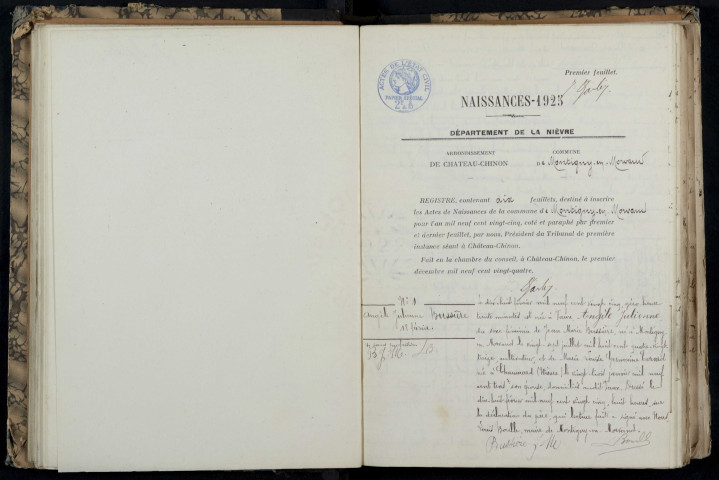 Premier feuillet.
ACTES DE L'ETAT CIVIL
PAPIER SPECIAL
NAISSANCES-1925
DÉPARTEMENT DE LA NIÈVRE
ARRONDISSEMENT
DE CHATEAU-CHINON
COMMUNE
de Montigny-en-Morvand
REGISTRE, contenant dix feuillets, destiné à inscrire
les Actes de Naissances de la commune de Montigny-en-Morvand
pour l'an mil neuf cent vingt-cinq, coté et paraphé par premier
et dernier feuillet, par nous, Président du Tribunal de première
instance séant à Château-Chinon.
Fait en la chambre du conseil, à Château-Chinon, le premier
décembre mil neuf cent vingt-quatre.
No 1
Angèle Julienne Bussière
18 février
B J. M. L B
Le dix-huit février mil neuf cent vingt cinq, zéro heure
trente minutes est née à Angèle Julienne
du sexe féminin de Jean Marie Bussière, né à Montigny
en Morvand le vingt sept juillet mil huit cent quatre vingt
cultivateur, et de Marie Louise
née à (Nièvre) le vingt trois janvier mil neuf
cent trois, son épouse, domiciliés audit Dressé le
dix-huit février mil neuf cent vingt cinq, huit heures, sur
la déclaration du père, qui lecture faite a signé avec Nous
Louis maire de Montigny-en-Morvand.
Bussière J. M